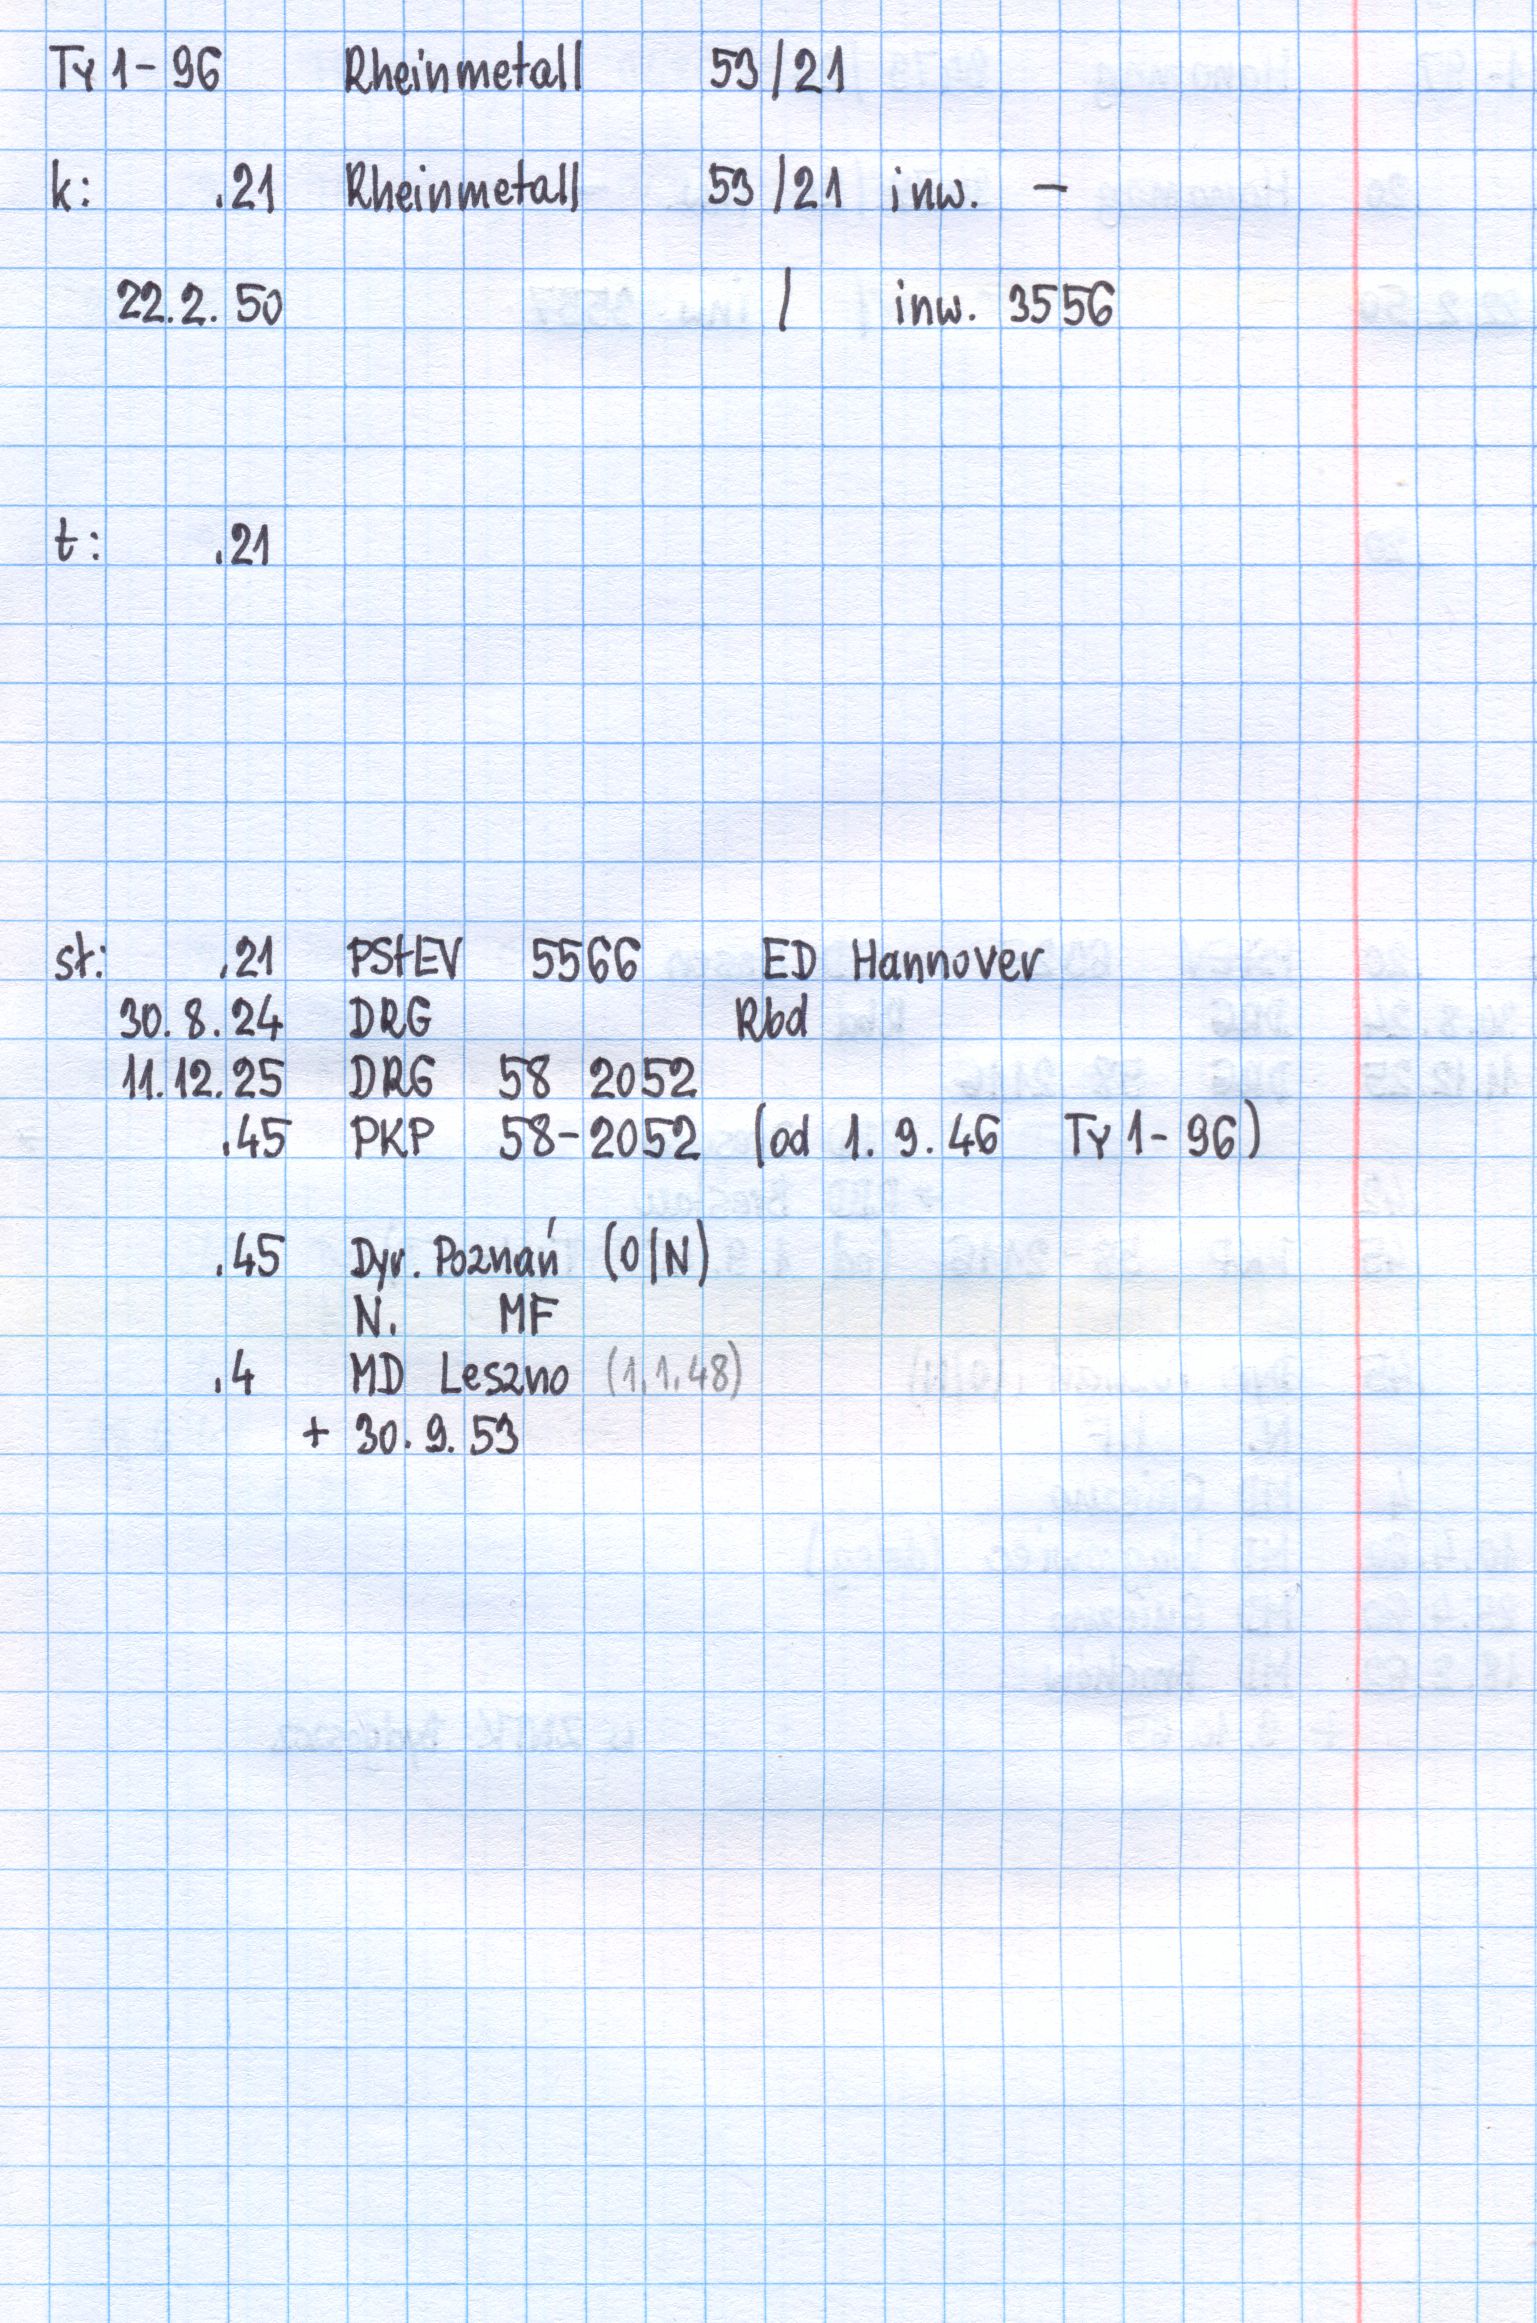 Ty 1-96 Rheinmetall 53/21
k: .21 Rheinmetall 53/21 inw. -
22.2.50 / inw. 3556
t: .21
st: .21 PStEV 5566 ED Hannover
30.8.24 DRG Rbd
11.12.25 DRG 58 2052
.45 PKP 58-2052 (od 1.9.46 Ty 1-96)
.45 Dyr. Poznań (O/N)
N. MF
.4 MD Leszno (1.1.48)
+ 30.9.53